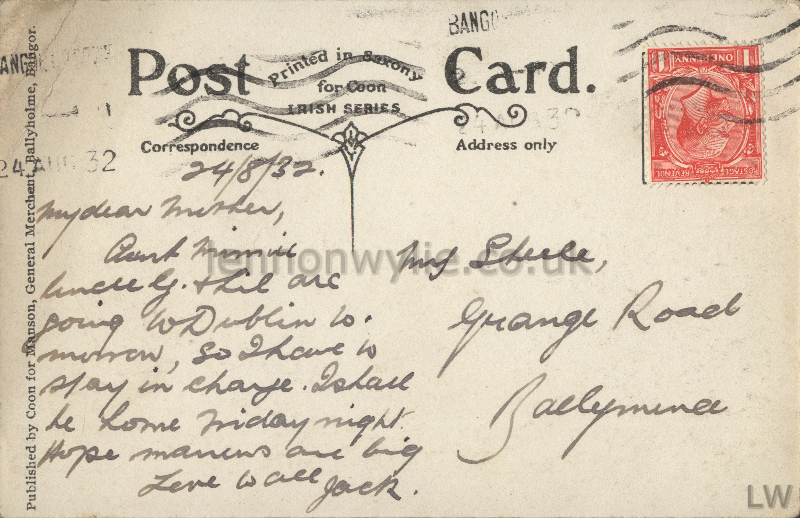 BANGO
BANG
24 AUG 32
Post Card.
Printed in Saxony
for Coon
IRISH SERIES
Correspondence
Address only
ONE PENNY
POSTAGE REVENUE
24/8/32.
My dear Mother,
Aunt Minnie
Uncle G. & Lil are
going to Dublin to-
morrow, so I have to
stay in charge. I shall
be home Friday night.
Hope are big
Love to all
Jack.
Mrs Steele,
Grange Road
Ballymena
Published by Coon for Manson, General Merchant, Ballyholme, Bangor.
lennonwylie.co.uk
LW